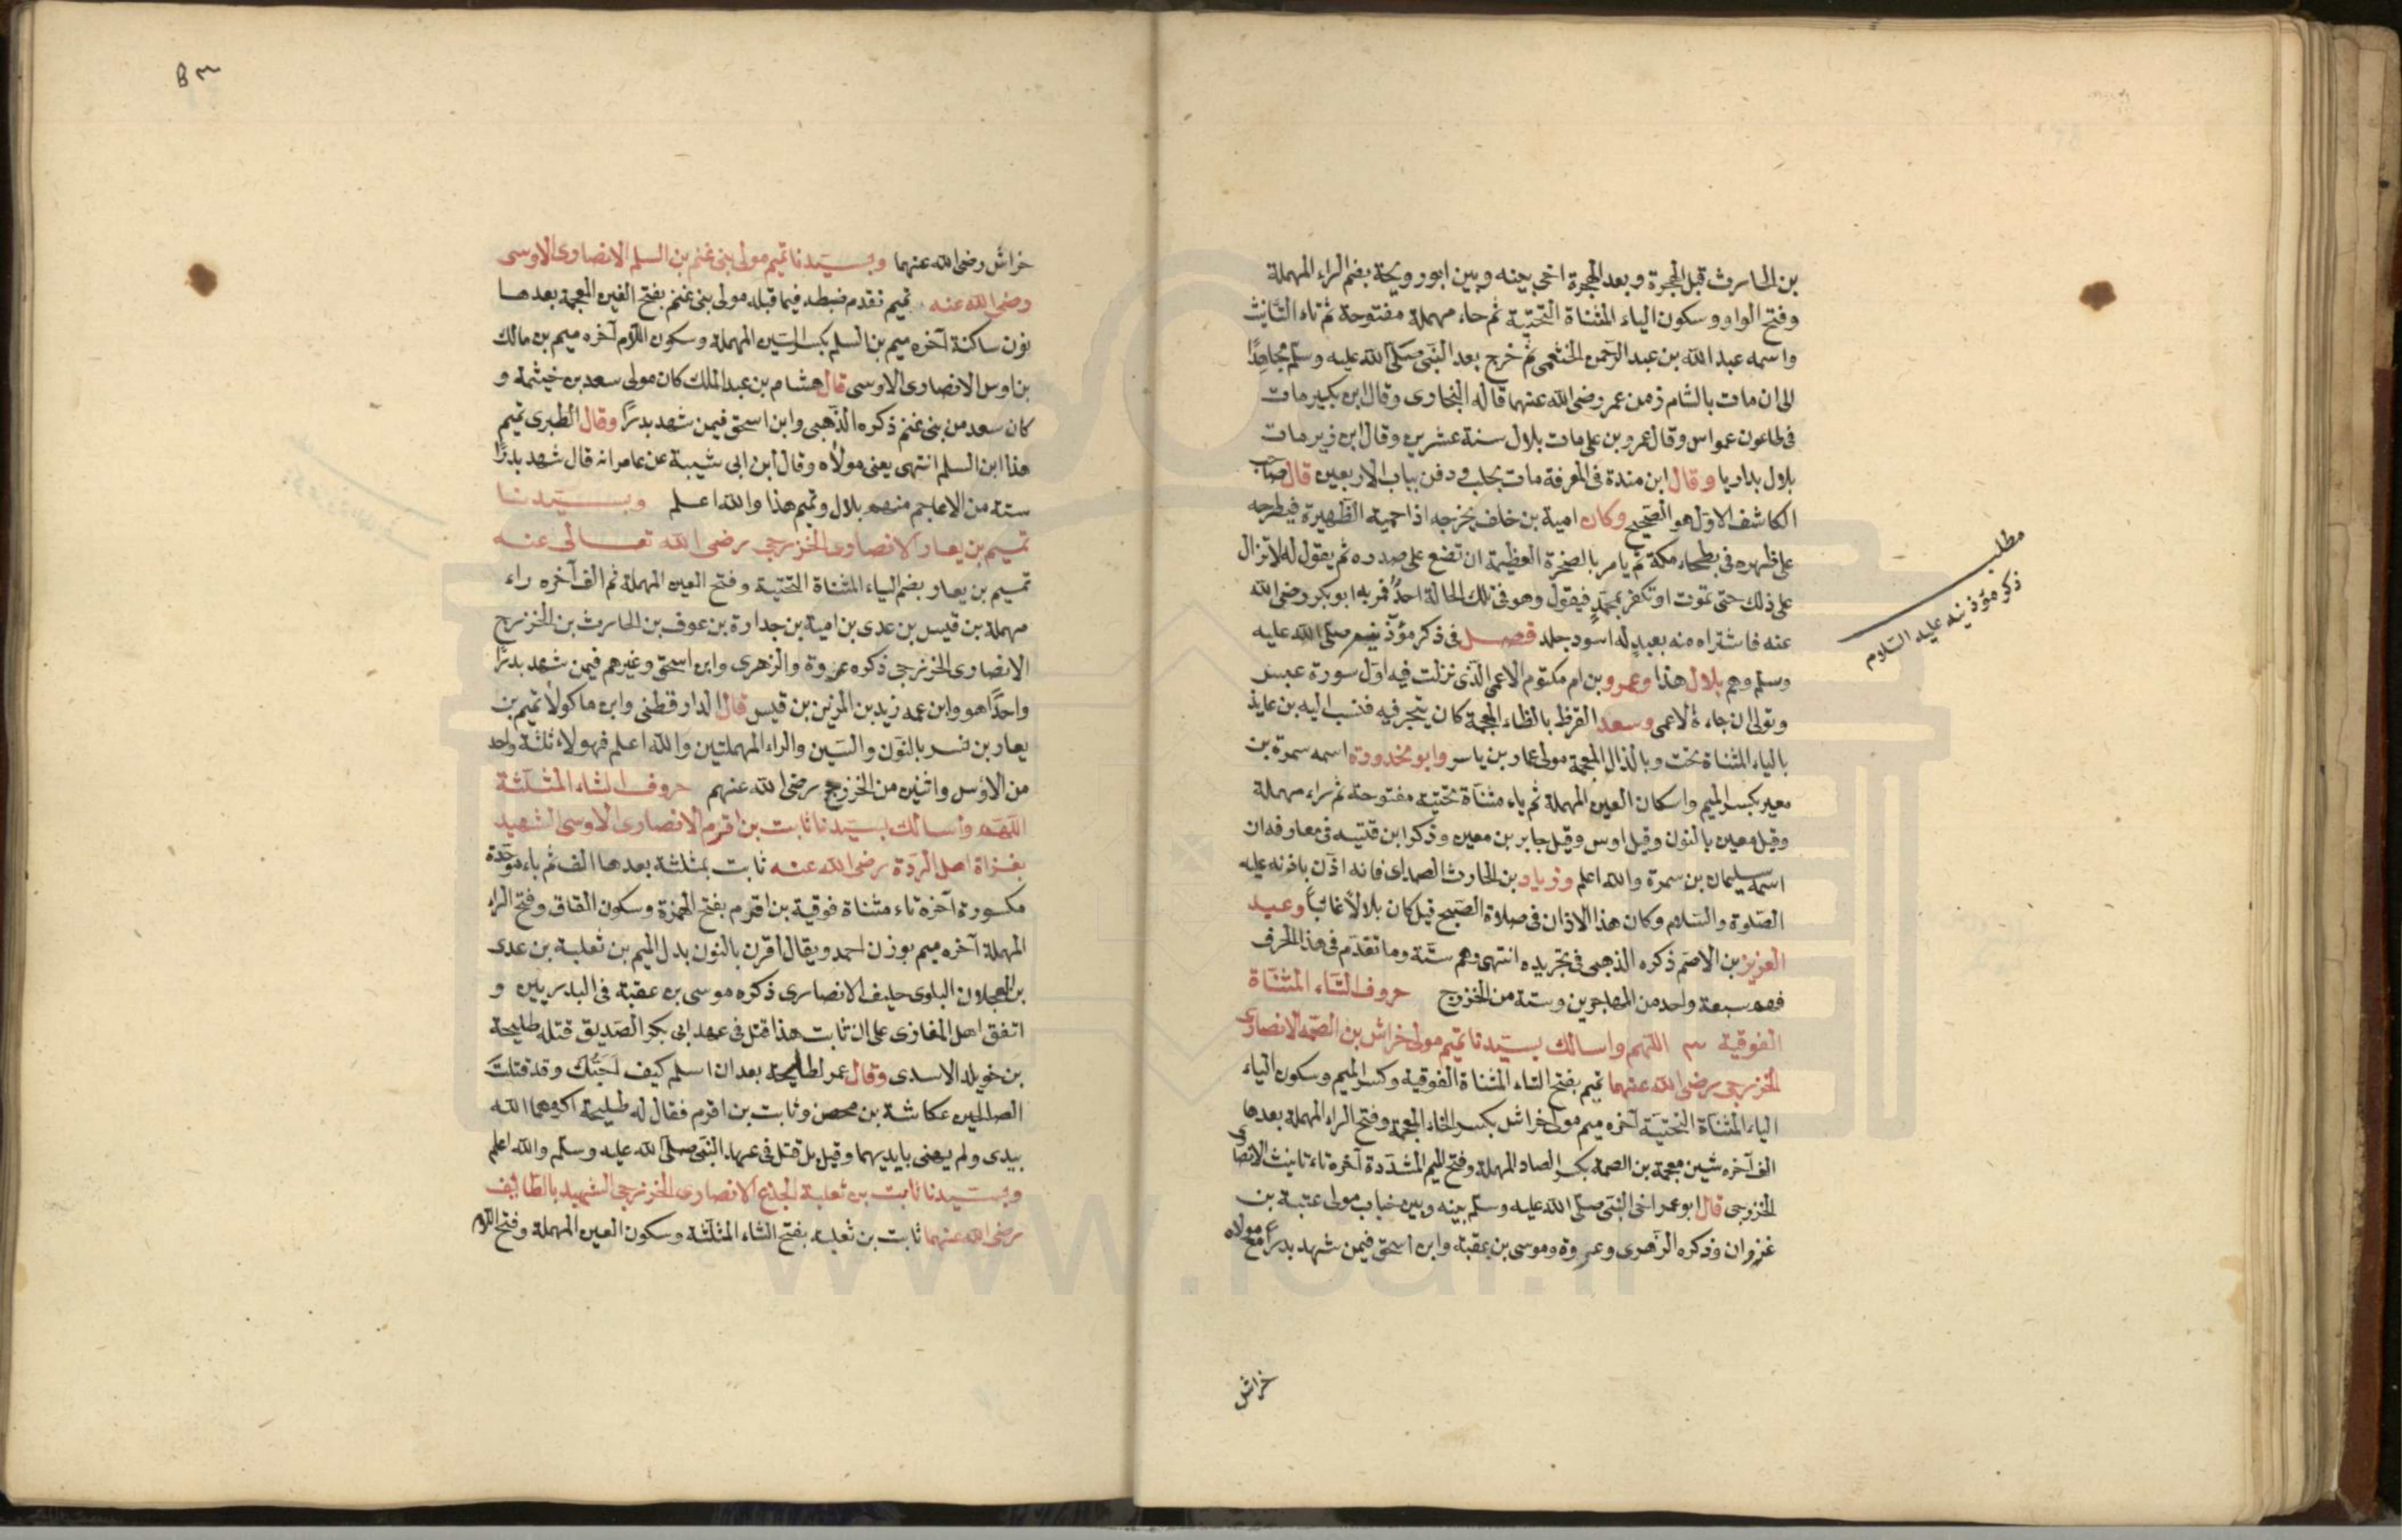 بن الحارث قبل الهجرة وبعد الهجرة اخى بينه وبين ابو رويحة بضم الراء المهملة
وفتح الواو وسكون الياء المثناة التحتية ثم حاء مهملة مفتوحة ثم تاء التأنيث
واسمه عبد الله بن عبد الرحمن الخثعمى ثم خرج بعد النبى صلى الله عليه وسلم مجاهدًا
الى ان مات بالشام زمن عمر رضى الله عنهما قاله البخارى وقال ابن بكير مات
فى طاعون عمواس وقال عمرو بن على مات بلال سنة عشرين وقال ابن زبر مات
بلال بداريا وقال ابن مندة فى المعرفة مات بحلب ودفن بباب الاربعين قال صاحب
الكاشف الاول هو الصحيح وكان امية بن خلف يخرجه اذا حميت الظهيرة فيطرحه
على ظهره فى بطحاء مكة ثم يامر بالصخرة العظيمة ان تضع على صدره ثم يقول له لا تزال
على ذلك حتى تموت او تكفر بمحمدٍ فيقول وهو فى تلك الحالة احدٌ فمر به ابو بكر رضى الله
عنه فاشتراه منه بعبدٍ له اسود جلد فصل فى ذكر مؤذنيه صلى الله عليه
وسلم وهم بلال هذا وعمرو بن ام مكتوم الاعمى الذى نزلت فيه اول سورة عبس
وتولى ان جاءه الاعمى وسعد القرظ بالظاء المعجمة كان يتجر فيه فنسب اليه بن عايذ
بالياء المثناة تحت وبالذال المعجمة مولى عمار بن ياسر وابو محذورة اسمه سمرة بن
معير بكسر الميم واسكان العين المهملة ثم ياء مثناة تحتية مفتوحة ثم راء مهملة
وقيل معين بالنون وقيل اوس وقيل جابر بن معين وذكر ابن قتيبه فى معارفه ان
اسمه سليمان بن سمرة والله اعلم وزياد بن الحارث الصداى فانه اذن باذنه عليه
الصلوة والسلام وكان هذا الاذان فى صلاة الصبح قيل كان بلالاً غائباً وعبد
العزيز بن الاصم ذكره الذهبى فى تجريده انتهى وهم ستة وما تقدم فى هذا الحرف
فهم سبعة واحد من المهاجرين وستة من الخزرج حروف التاء المثناة
الفوقية اللهم واسالك بسيدنا تميم مولى خراش بن الصمة الانصارى
الخزرجى رضى الله عنهما تميم بفتح التاء المثناة الفوقية وكسر الميم وسكون الياء
الياء المثناة التحتية آخره ميم مولى خراش بكسر الخاء المعجمة وفتح الراء المهملة بعدها
الف آخره شين معجمة بن الصمة بكسر الصاد المهملة وفتح الميم المشددة آخره تاء تانيث الانصارى
الخزرجى قال ابو عمر اخى النبى صلى الله عليه وسلم بينه وبين خباب مولى عتبة بن
غزوان وذكره الزهرى وعروة وموسى بن عقبة وابن اسحق فيمن شهد بدرا مع مولاه
خراش
مطلب
ذكر مؤذنينه عليه السلام
خراش رضى الله عنهما وبسيدنا تميم مولى بنى غنم بن السلم الانصارى الاوسى
رضى الله عنه تميم تقدم ضبطه فيما قبله مولى بنى غنم بفتح الغين المعجمة بعدها
نون ساكنة آخره ميم بن السلم بكسر السين المهملة وسكون اللام آخره ميم بن مالك
بن اوس الانصارى الاوسى قال هشام بن عبد الملك كان مولى سعد بن خيثمة و
كان سعد من بنى غنم ذكره الذهبى وابن اسحق فيمن شهد بدرًا وقال الطبرى تميم
هذا ابن السلم انتهى يعنى مولاه وقال ابن ابى شيبة عن عامر انه قال شهد بدرًا
ستة من الاعاجم منهم بلال وتميم هذا والله اعلم وبسيدنا
تميم بن يعار الانصارى الخزرجى رضى الله تعالى عنه
تميم بن يعار بضم الياء المثناة التحتية وفتح العين المهملة ثم الف آخره راء
مهملة بن قيس بن عدى بن امية بن جدارة بن عوف بن الحارث بن الخزرج
الانصارى الخزرجى ذكره عروة والزهرى وابن اسحق وغيرهم فيمن شهد بدرًا
واحدًا هو وابن عمه زيد بن المزين بن قيس قال الدارقطنى وابن ماكولا تميم بن
يعار بن نسر بالنون والسين والراء المهملتين والله اعلم فهولاء ثلثة واحد
من الاوس واثنين من الخزرج رضى الله عنهم حروف الثاء المثلثة
اللهم واسالك بسيدنا ثابت بن اقرم الانصارى الاوسى الشهيد
بغزاة اهل الردة رضى الله عنه ثابت بمثلثة بعدها الف ثم باء موحدة
مكسورة آخره تاء مثناة فوقية بن اقرم بفتح الهمزة وسكون القاف وفتح الراء
المهملة آخره ميم بوزن احمد ويقال اقرن بالنون بدل الميم بن ثعلبة بن عدى
بن العجلان البلوى حليف الانصارى ذكره موسى بن عقبة فى البدريين و
اتفق اهل المغازى على ان ثابت هذا قتل فى عهد ابى بكر الصديق قتله طليحة
بن خويلد الاسدى وقال عمر لطليحة بعد ان اسلم كيف احبك وقد قتلت
الصالحين عكاشة بن محصن وثابت بن اقرم فقال له طليحة اكرمهما الله
بيدى ولم يهنى بايديهما وقيل بل قتل فى عهد النبى صلى الله عليه وسلم والله اعلم
وبسيدنا ثابت بن ثعلبة الجذع الانصارى الخزرجى الشهيد بالطايف
رضى الله عنهما ثابت بن ثعلبه بفتح الثاء المثلثة وسكون العين المهملة وفتح اللام
www.ical.ir